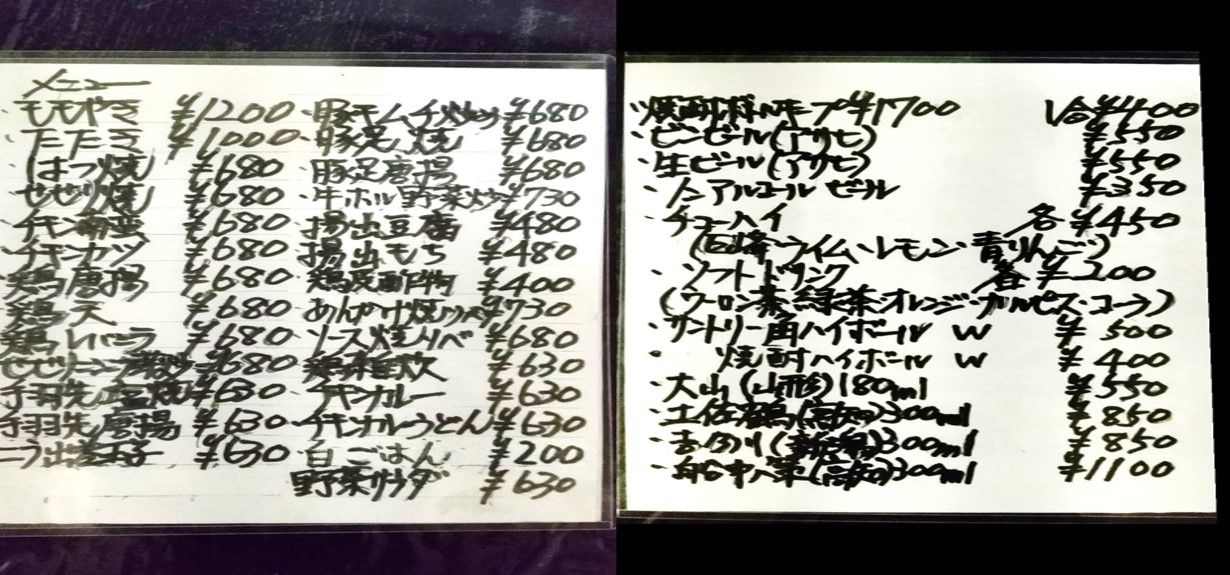 メニュー
・モモやき ¥1200
・たたき ¥1000
・はつ焼 ¥680
・せせり焼 ¥680
・チキン南蛮 ¥680
・チキンカツ ¥680
・鶏唐揚 ¥680
・鶏天 ¥680
鶏レバニラ ¥680
¥680
手羽先塩焼 ¥630
手羽先唐揚 ¥630
玉子 ¥630
・豚キムチ炒 ¥680
・豚足焼 ¥680
・豚足唐揚 ¥680
・牛ホル野菜炒 ¥730
揚出豆腐 ¥480
揚出もち ¥480
・鶏皮酢物 ¥400
あんかけ焼そば ¥730
・ソース焼そば ¥680
・鶏雑炊 ¥630
・チキンカレー ¥630
・チキンカレーうどん ¥630
・白ごはん ¥200
野菜サラダ ¥630
・焼酎ボトルキープ ¥1700 ¥4400
・ビンビール(アサヒ) ¥550
・生ビール(アサヒ) ¥550
・ノンアルコールビール ¥350
・チューハイ 各 ¥450
(巨峰・ライム・レモン・青りんご)
・ソフトドリンク 各 ¥200
(ウーロン茶・緑茶・オレンジ・カルピス・コーラ)
・サントリー角ハイボール W ¥500
・焼酎ハイボール W ¥400
・大山(山形)180ml ¥550
・土佐鶴(高知)300ml ¥850
(新潟)300ml ¥850
・船中八策(高知)300ml ¥1100